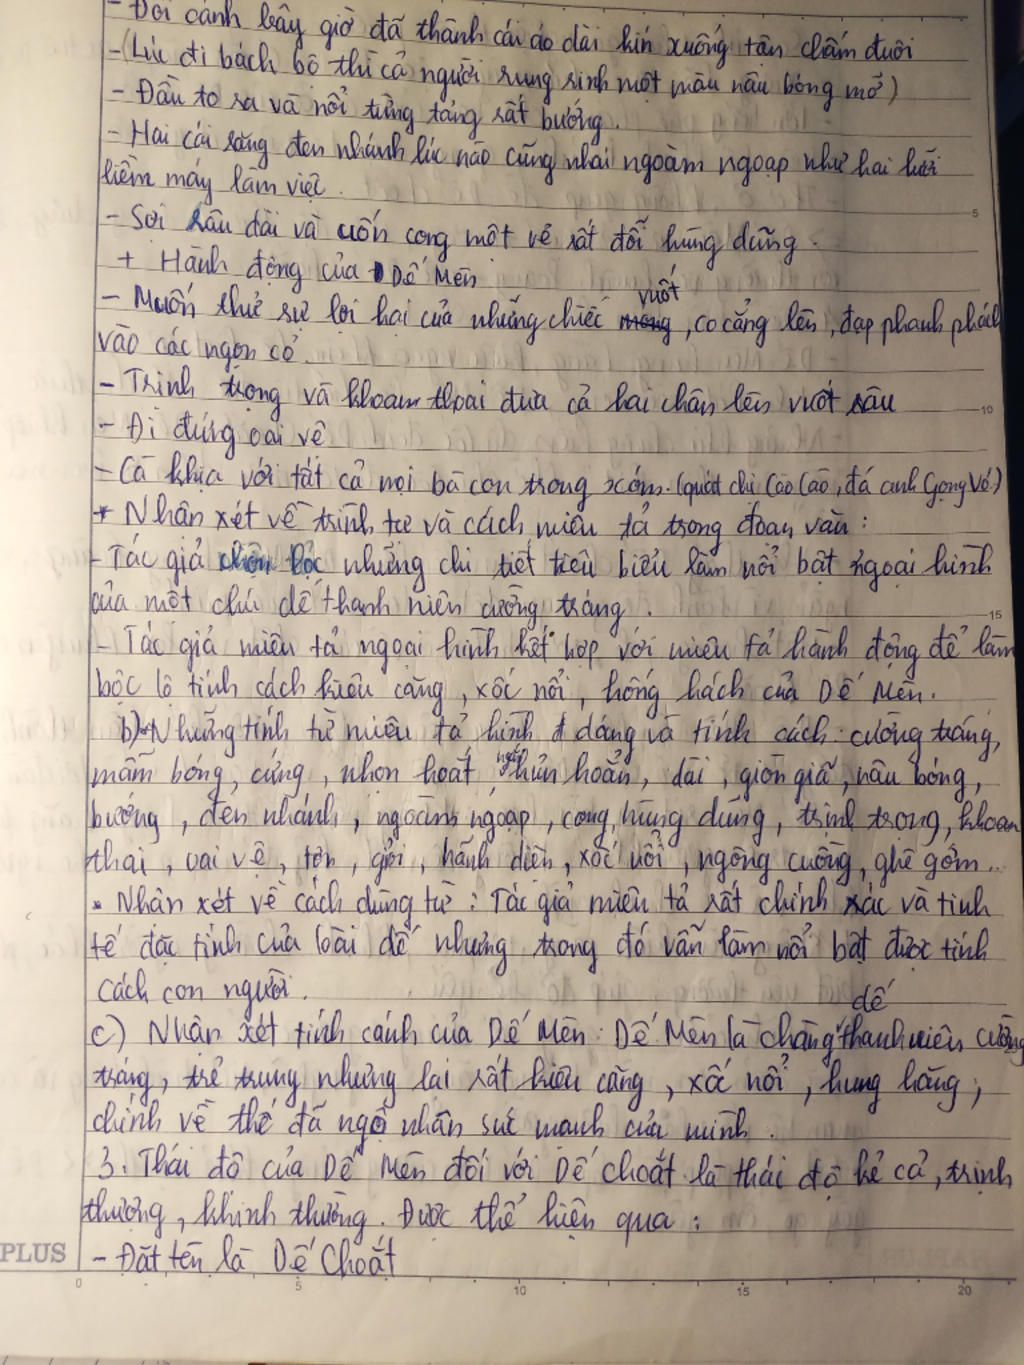 - Đôi cánh bây giờ đã thành cái áo dài kín xuống tận chấm đuôi
- (Lúc đi bách bộ thì cả người rung rinh một màu nâu bóng mỡ)
- Đầu to ra và nổi từng tảng rất bướng.
- Hai cái răng đen nhánh lúc nào cũng nhai ngoàm ngoạp như hai lưỡi
liềm máy làm việc.
- Sợi râu dài và uốn cong một vẻ rất đỗi hùng dũng.
+ Hành động của Dế Mèn
- Muốn thử sự lợi hại của những chiếc vuốt, co cẳng lên, đạp phanh phách
vào các ngọn cỏ.
- Trịnh trọng và khoan thoai đưa cả hai chân lên vuốt râu
- Đi đứng oai vệ
- Cà khịa với tất cả mọi bà con trong xóm. (quát chị Cào Cào, đá anh Gọng Vó)
* Nhận xét về trình tự và cách miêu tả trong đoạn văn:
- Tác giả chọn lọc những chi tiết tiêu biểu làm nổi bật ngoại hình
của một chú dế thanh niên cường tráng.
- Tác giả miêu tả ngoại hình kết hợp với miêu tả hành động để làm
bộc lộ tính cách kiêu căng, xốc nổi, hống hách của Dế Mèn.
b) Những tính từ miêu tả hình dáng và tính cách: cường tráng,
mẫm bóng, cứng, nhọn hoắt, ngắn hủn hoẳn, dài, giòn giã, nâu bóng,
bướng, đen nhánh, ngoàm ngoạp, cong, hùng dũng, trịnh trọng, khoan
thai, oai vệ, tợn, giỏi, hãnh diện, xốc nổi, ngông cuồng, ghê gớm..
• Nhận xét về cách dùng từ: Tác giả miêu tả rất chính xác và tinh
tế đặc tính của loài dế nhưng trong đó vẫn làm nổi bật được tính
cách con người.
c) Nhận xét tính cánh của Dế Mèn: Dế Mèn là chàng dế thanh niên cường
tráng, trẻ trung nhưng lại rất kiêu căng, xốc nổi, hung hăng,
chính vì thế đã ngộ nhận sức mạnh của mình.
3. Thái độ của Dế Mèn đối với Dế choắt là thái độ kẻ cả, trịnh
thượng, khinh thường. Được thể hiện qua:
- Đặt tên là Dế Choắt
PLUS
5
10
15
0 5 10 15 20